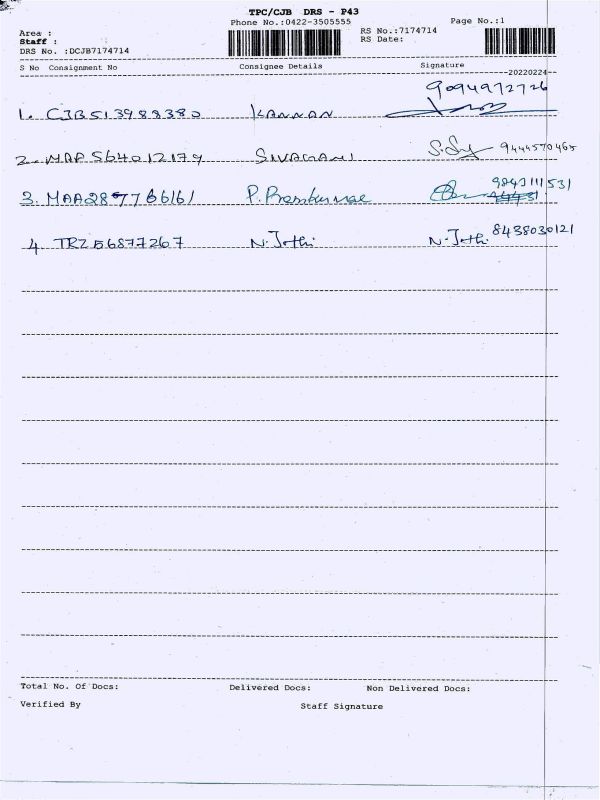 TPC/CJB DRS - P43
Phone No.:0422-3505555 Page No.:1
Area : RS No.:7174714
Staff : RS Date:
DRS No. :DCJB7174714
S No Consignment No Consignee Details Signature
--20220224--
9094972726
1. CJB513983380 KANNAN
2. MAP564012179 SIVAGAMI 9444570465
9843111531
3. MAA287766161 P.
8438030121
4. TRZ56877267 N. Jothi N. Jothi
Total No. Of Docs: Delivered Docs: Non Delivered Docs:
Verified By Staff Signature